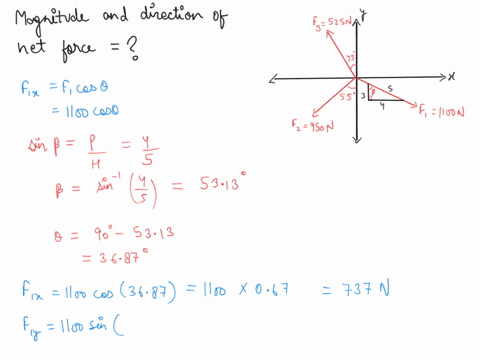 Magnitude and direction of
net force = ?
F₁ₓ = F₁ cosθ
= 1100 cosθ
sin β = P/H = 4/5
β = sin⁻¹(4/5) = 53.13°
θ = 90° − 53.13
= 36.87°
F₁ₓ = 1100 cos(36.87) = 1100 × 0.67 = 737 N
F₁ᵧ = 1100 sin (
y
F₃ = 525N
45°
x
55°
3
β
5
4
F₁ = 1100N
F₂ = 950N